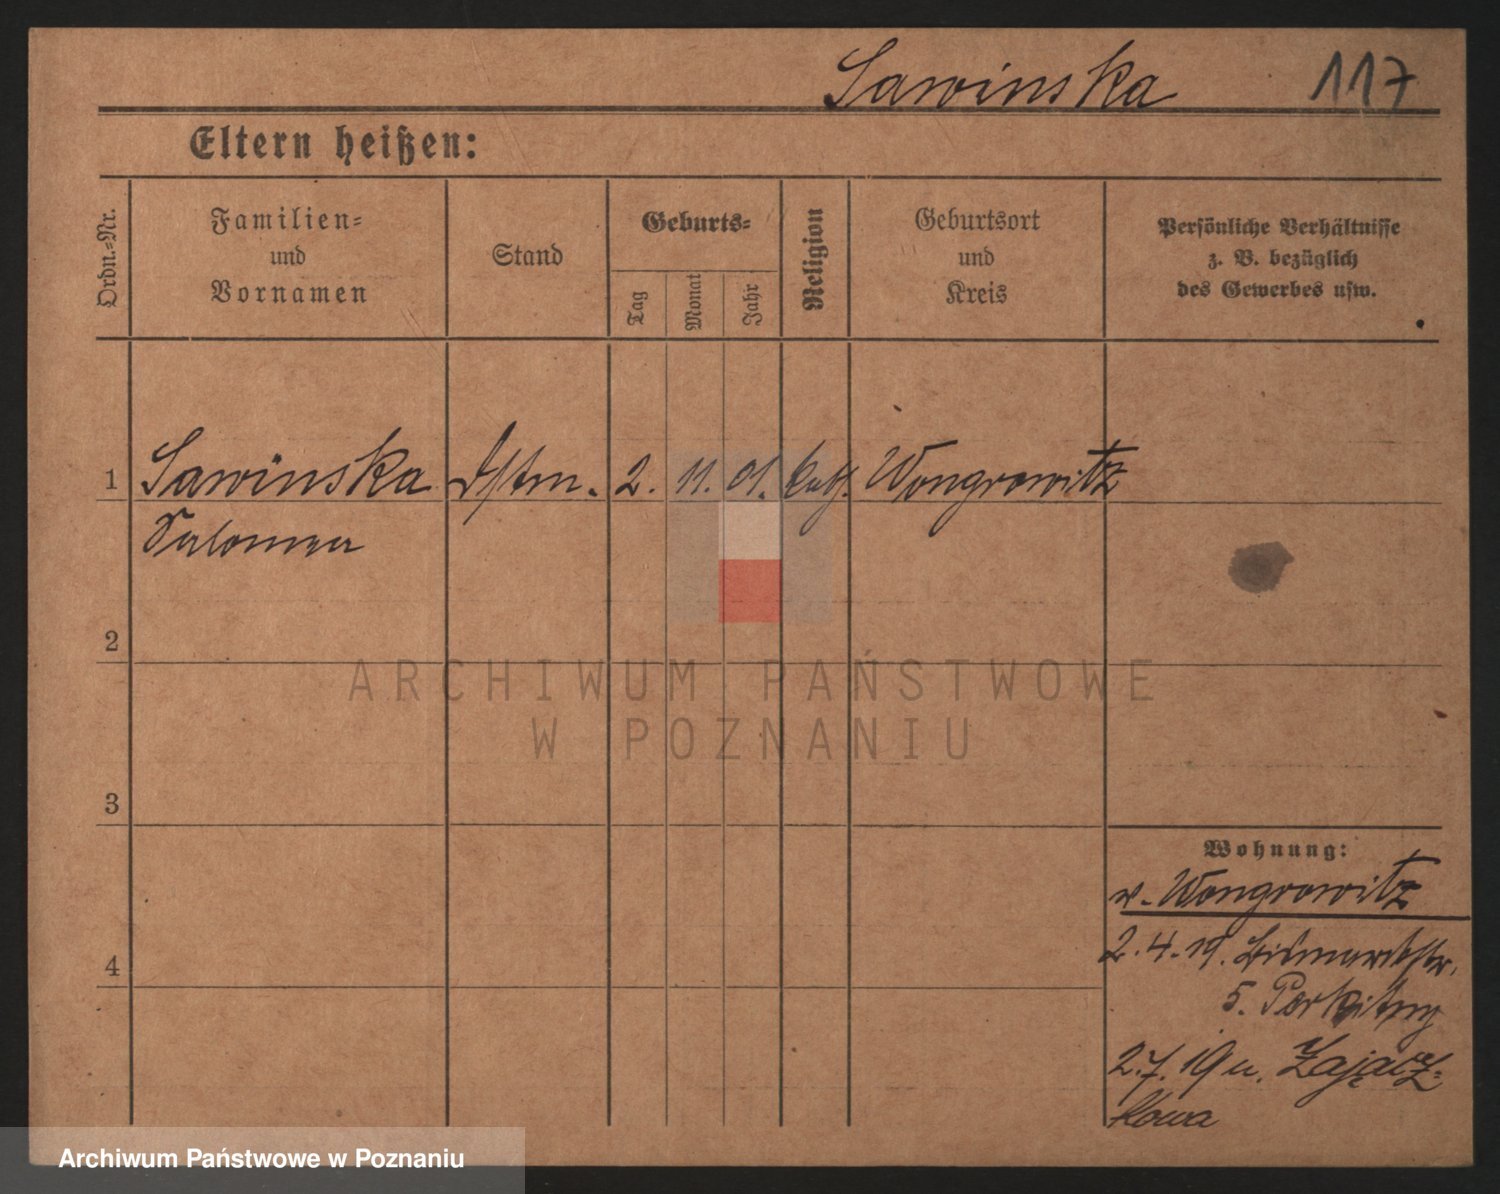 Sawinska 117
Eltern heißen:
Ordn.-Nr.
Familien-
und
Vornamen
Stand
Geburts-
Tag
Monat
Jahr
Religion
Geburtsort
und
Kreis
Persönliche Verhältnisse
z. B. bezüglich
des Gewerbes usw.
1 Sawinska Dstm. 2. 11. 01. kath. Wongrowitz
Salomea
2
ARCHIWUM PAŃSTWOWE
W POZNANIU
3
Wohnung:
v. Wongrowitz
4
2.4.19. Bismarckstr.
5. Perkitny
2.7.19 n. Zającz-
kowa
Archiwum Państwowe w Poznaniu